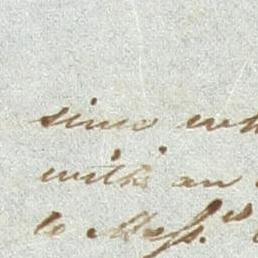 since wh
with an
to Mess.rs